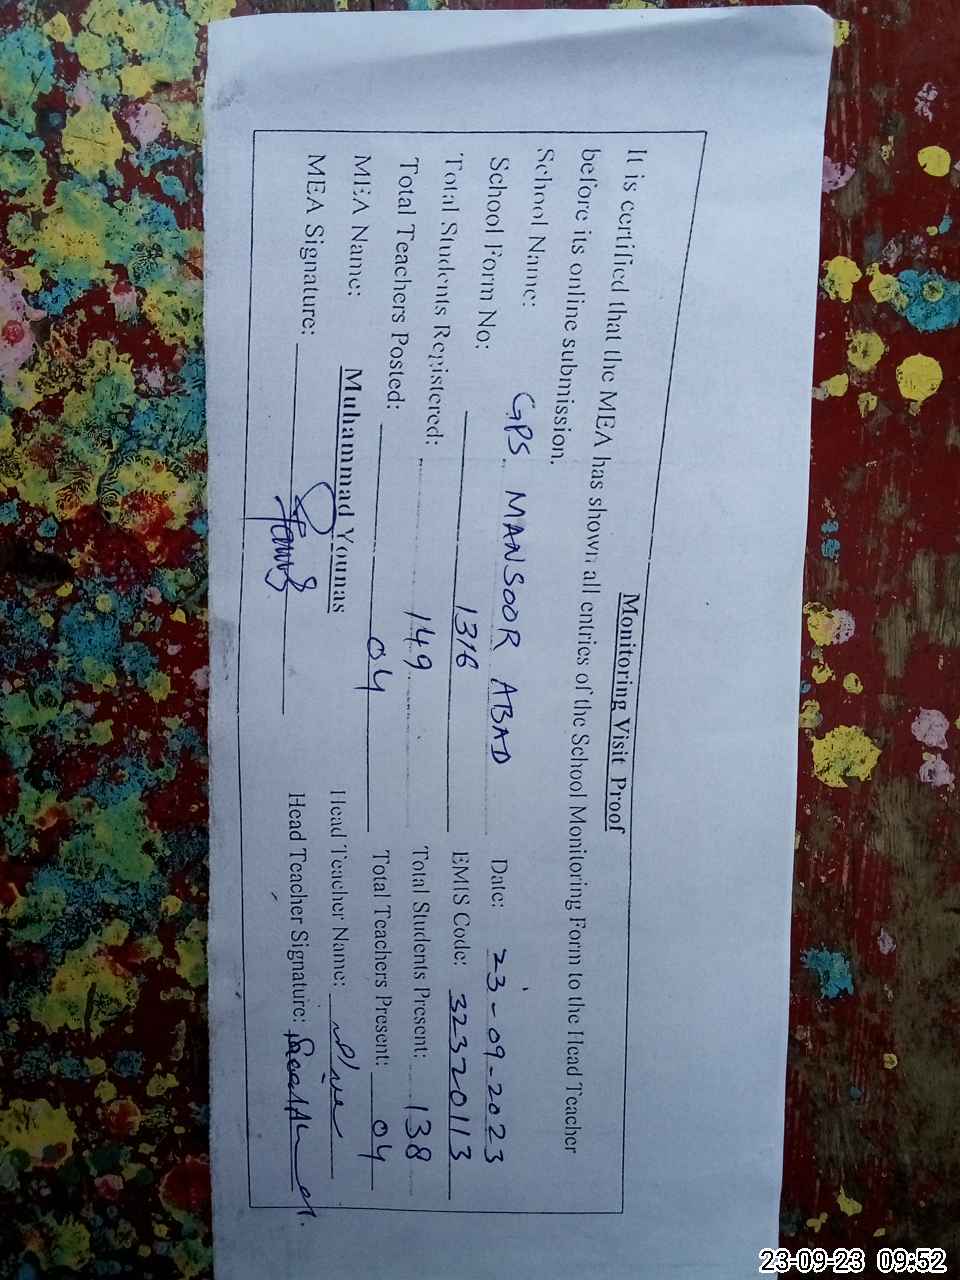 Monitoring Visit Proof
It is certified that the MEA has shown all entries of the School Monitoring Form to the Head Teacher
before its online submission.
School Name: GPS MANSOOR ABAD Date: 23-09-2023
School Form No: 1316 EMIS Code: 32320113
Total Students Registered: 149 Total Students Present: 138
Total Teachers Posted: 04 Total Teachers Present: 04
MEA Name: Muhammad Younas Head Teacher Name:
MEA Signature: Head Teacher Signature:
23-09-23 09:52